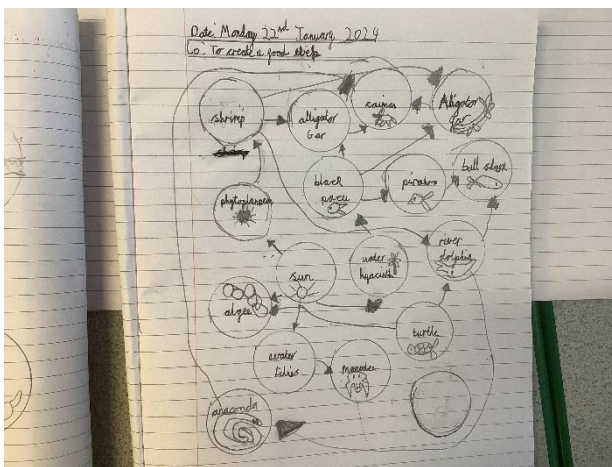 Date: Monday 22nd January 2024
Co: To create a food web
shrimp
alligator
gar
caiman
Alligator
gar
black
pacu
piranha
bull shark
sun
water
hyacinth
river
dolphin
algee
turtle
water
lilies
manatee
anaconda